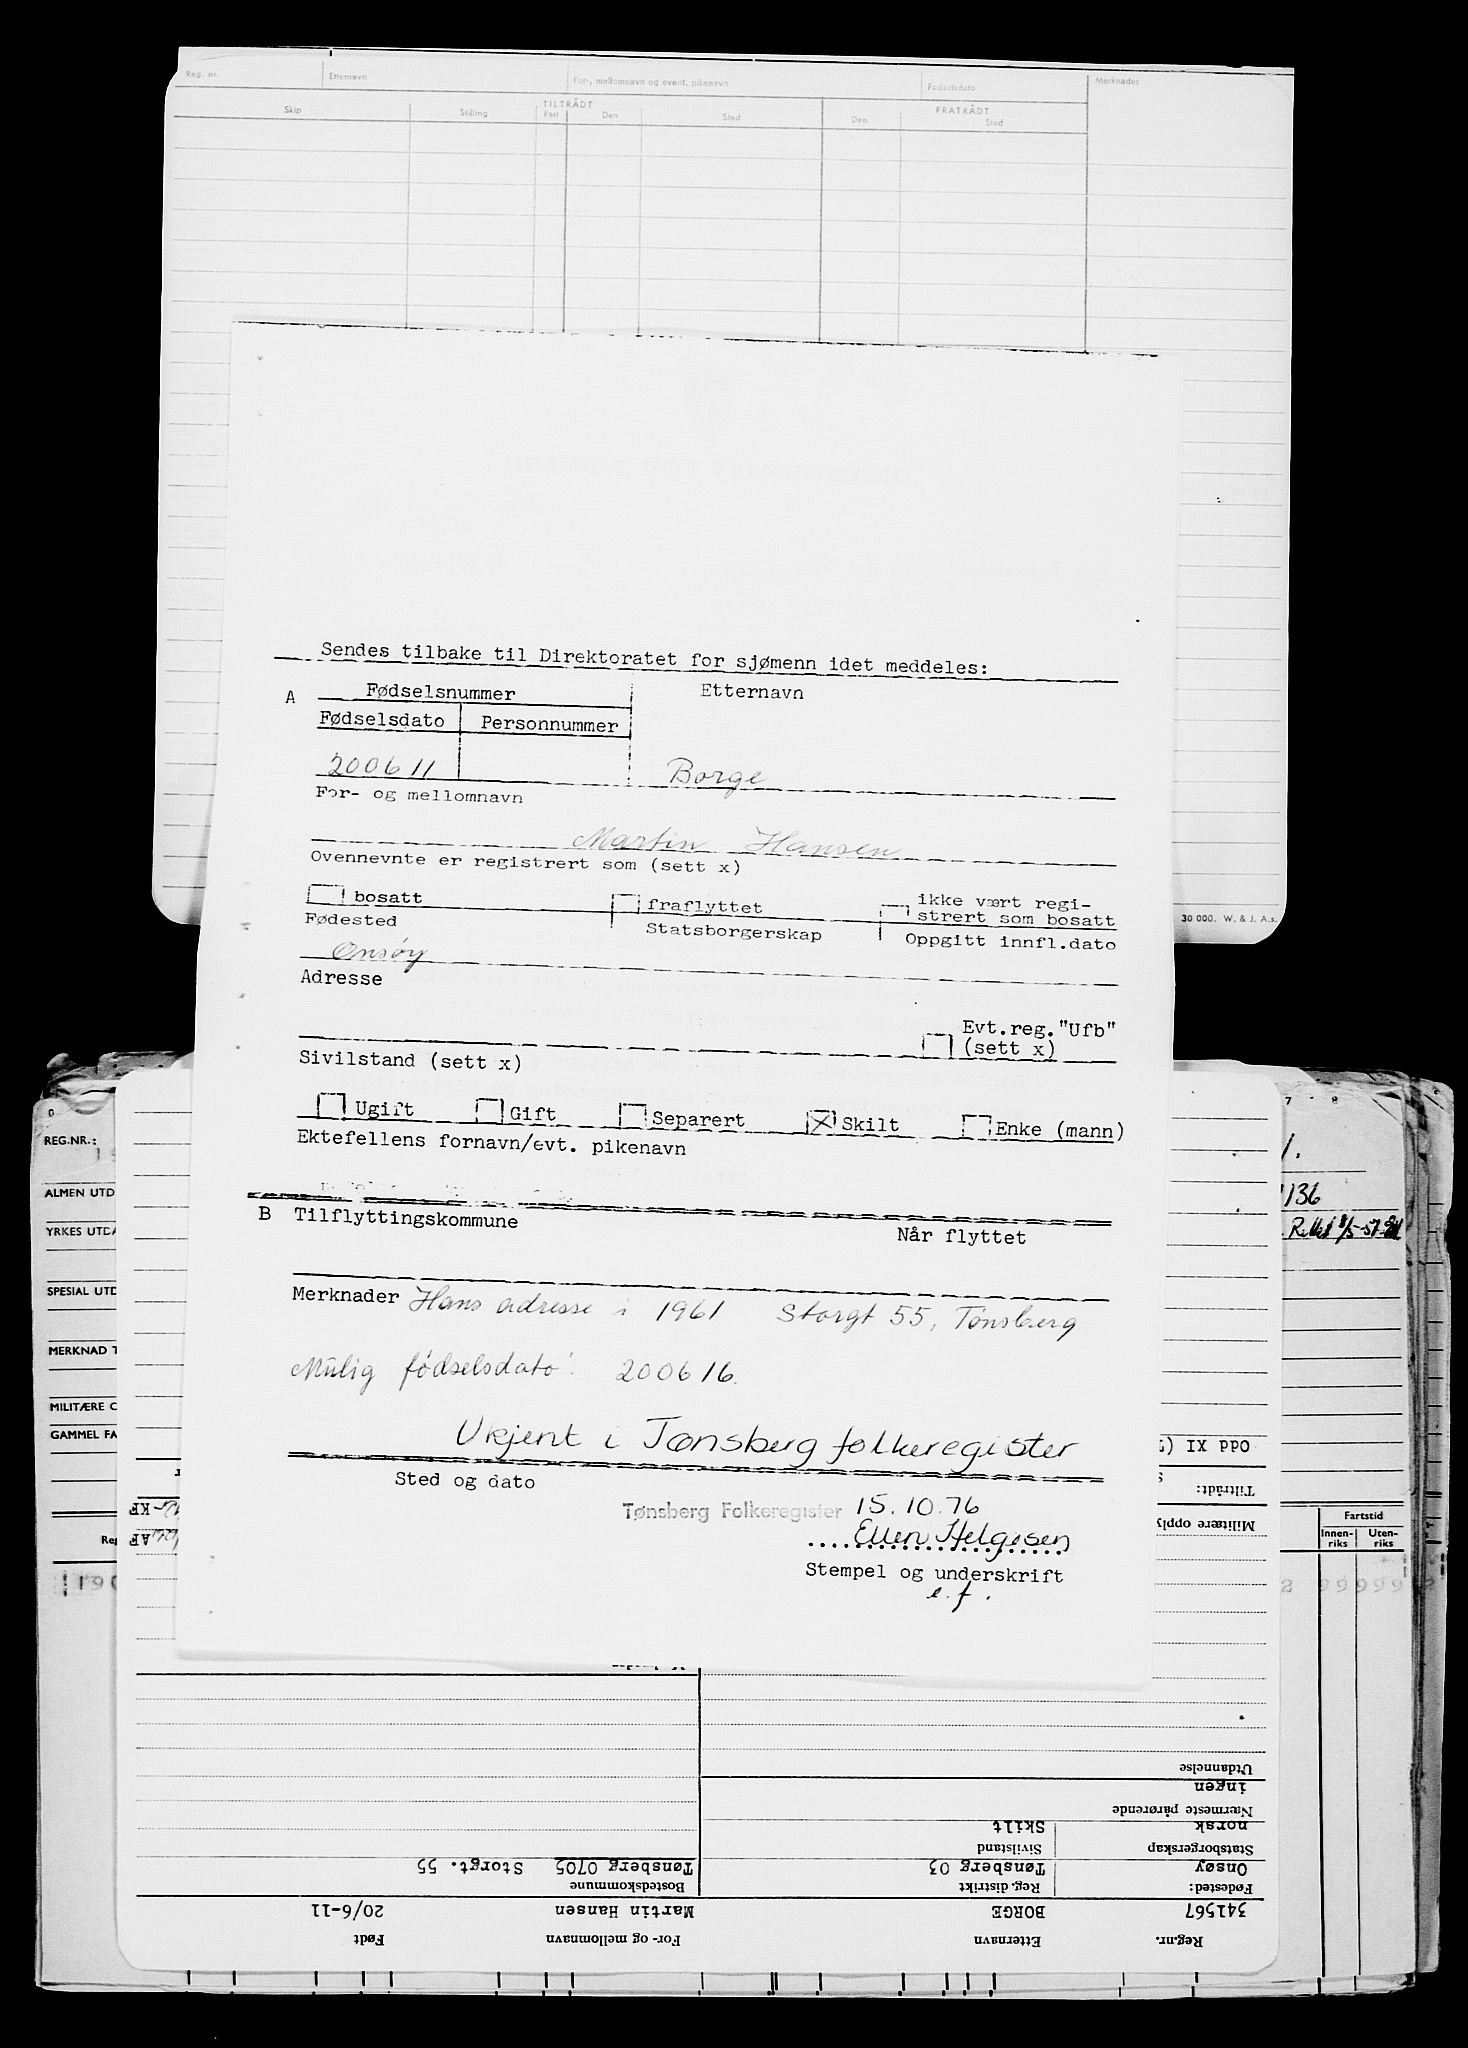 Reg. nr. Etternavn For-, mellomnavn og event. pikenavn Fødselsdato Merknader
TILTRÅDT FRATRÅDT
Skip Stilling Fast Den Sted Den Sted
Sendes tilbake til Direktoratet for sjømenn idet meddeles:
A Fødselsnummer Etternavn
Fødselsdato Personnummer
200611 Borge
For- og mellomnavn
Martin Hansen
Ovennevnte er registrert som (sett x)
bosatt fraflyttet ikke vært regi-
strert som bosatt
Fødested Statsborgerskap Oppgitt innfl.dato
Onsøy
Adresse
Evt.reg."Ufb"
(sett x)
Sivilstand (sett x)
Ugift Gift Separert X Skilt Enke (mann)
Ektefellens fornavn/evt. pikenavn
B Tilflyttingskommune Når flyttet
Merknader Hans adresse i 1961 Storgt 55, Tønsberg
Mulig fødselsdato: 200616.
Ukjent i Tønsberg folkeregister
Sted og dato
Tønsberg Folkeregister 15.10.76
Ellen Helgesen
Stempel og underskrift
e.f.
30 000. W. & J. A.s.
REG.NR.:
ALMEN UTD
YRKES UTDA
SPESIAL UTD
MERKNAD T
MILITÆRE O
GAMMEL FA
7 8
136
Odd XI
Tiltrådt:
Militære opply
Fartstid
Innen-riks Uten-riks
2 99999
Utdannelse
ingen
Nærmeste pårørende
norsk Skilt
Statsborgerskap Sivilstand
Onsøy Tønsberg 03 Tønsberg 0705 Storgt. 55
Fødested: Reg. distrikt Bostedskommune
341567 BORGE Martin Hansen 20/6-11
Reg.nr. Etternavn For- og mellomnavn Født